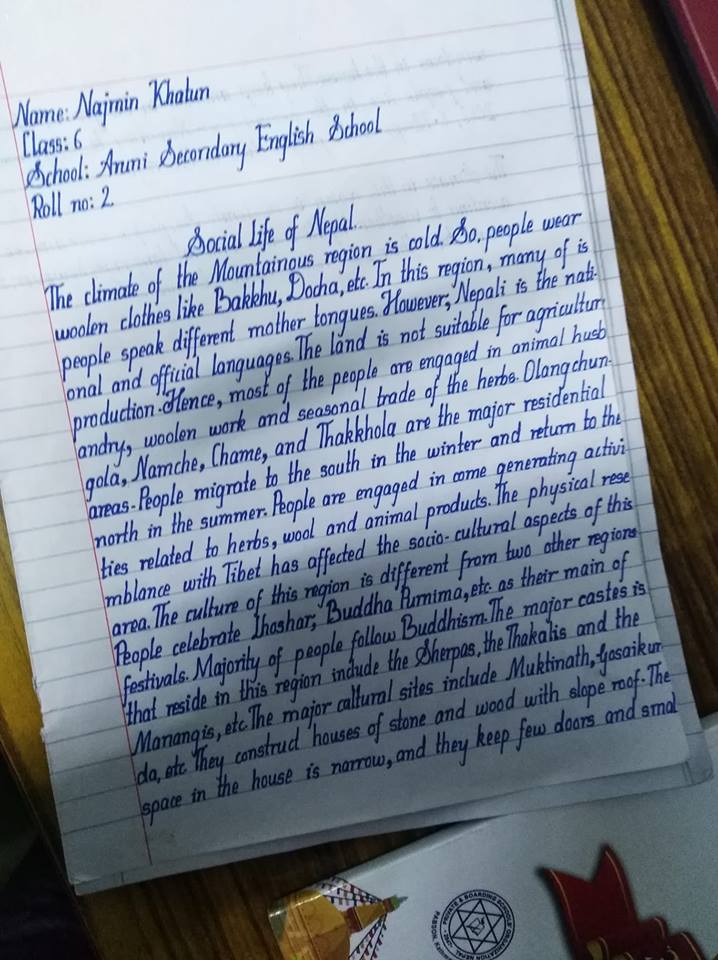 Name: Najmin Khatun
Class: 6
School: Aruni Secondary English School
Roll no: 2
Social Life of Nepal.
The climate of the Mountainous region is cold. So, people wear
woolen clothes like Bakkhu, Docha, etc. In this region, many of is
people speak different mother tongues. However, Nepali is the nati-
onal and official languages. The land is not suitable for agricultur
production. Hence, most of the people are engaged in animal husb
andry, woolen work and seasonal trade of the herbs. Olangchun-
gola, Namche, Chame, and Thakkhola are the major residential
areas. People migrate to the south in the winter and return to the
north in the summer. People are engaged in come generating activi
ties related to herbs, wool and animal products. The physical rese
mblance with Tibet has affected the socio-cultural aspects of this
area. The culture of this region is different from two other regions
People celebrate Lhoshar, Buddha Purnima, etc. as their main of
festivals. Majority of people follow Buddhism. The major castes is
that reside in this region include the Sherpas, the Thakalis and the
Manangis, etc. The major caltural sites include Muktinath, Gosaikun
da, etc. They construct houses of stone and wood with slope roof. The
space in the house is narrow, and they keep few doors and smal
PRIVATE & BOARDING SCHOOLS' ORGANIZATION NEPAL